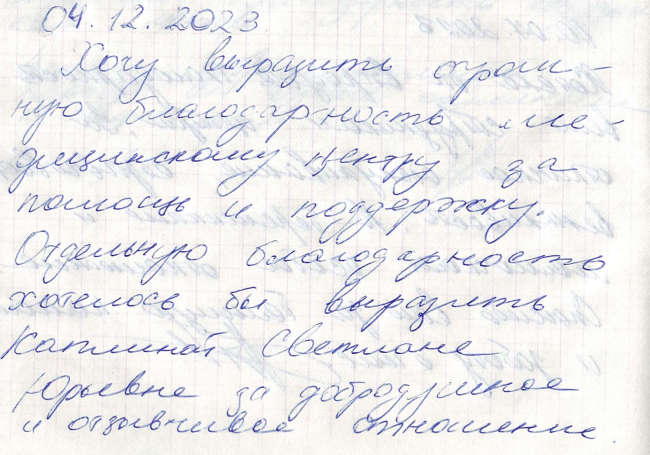 04.12.2023
Хочу выразить огром-
ную благодарность ме-
дицинскому центру за
помощь и поддержку.
Отдельную благодарность
хотелось бы выразить
Светлане
Юрьевне за добродушное
и отзывчивое отношение.